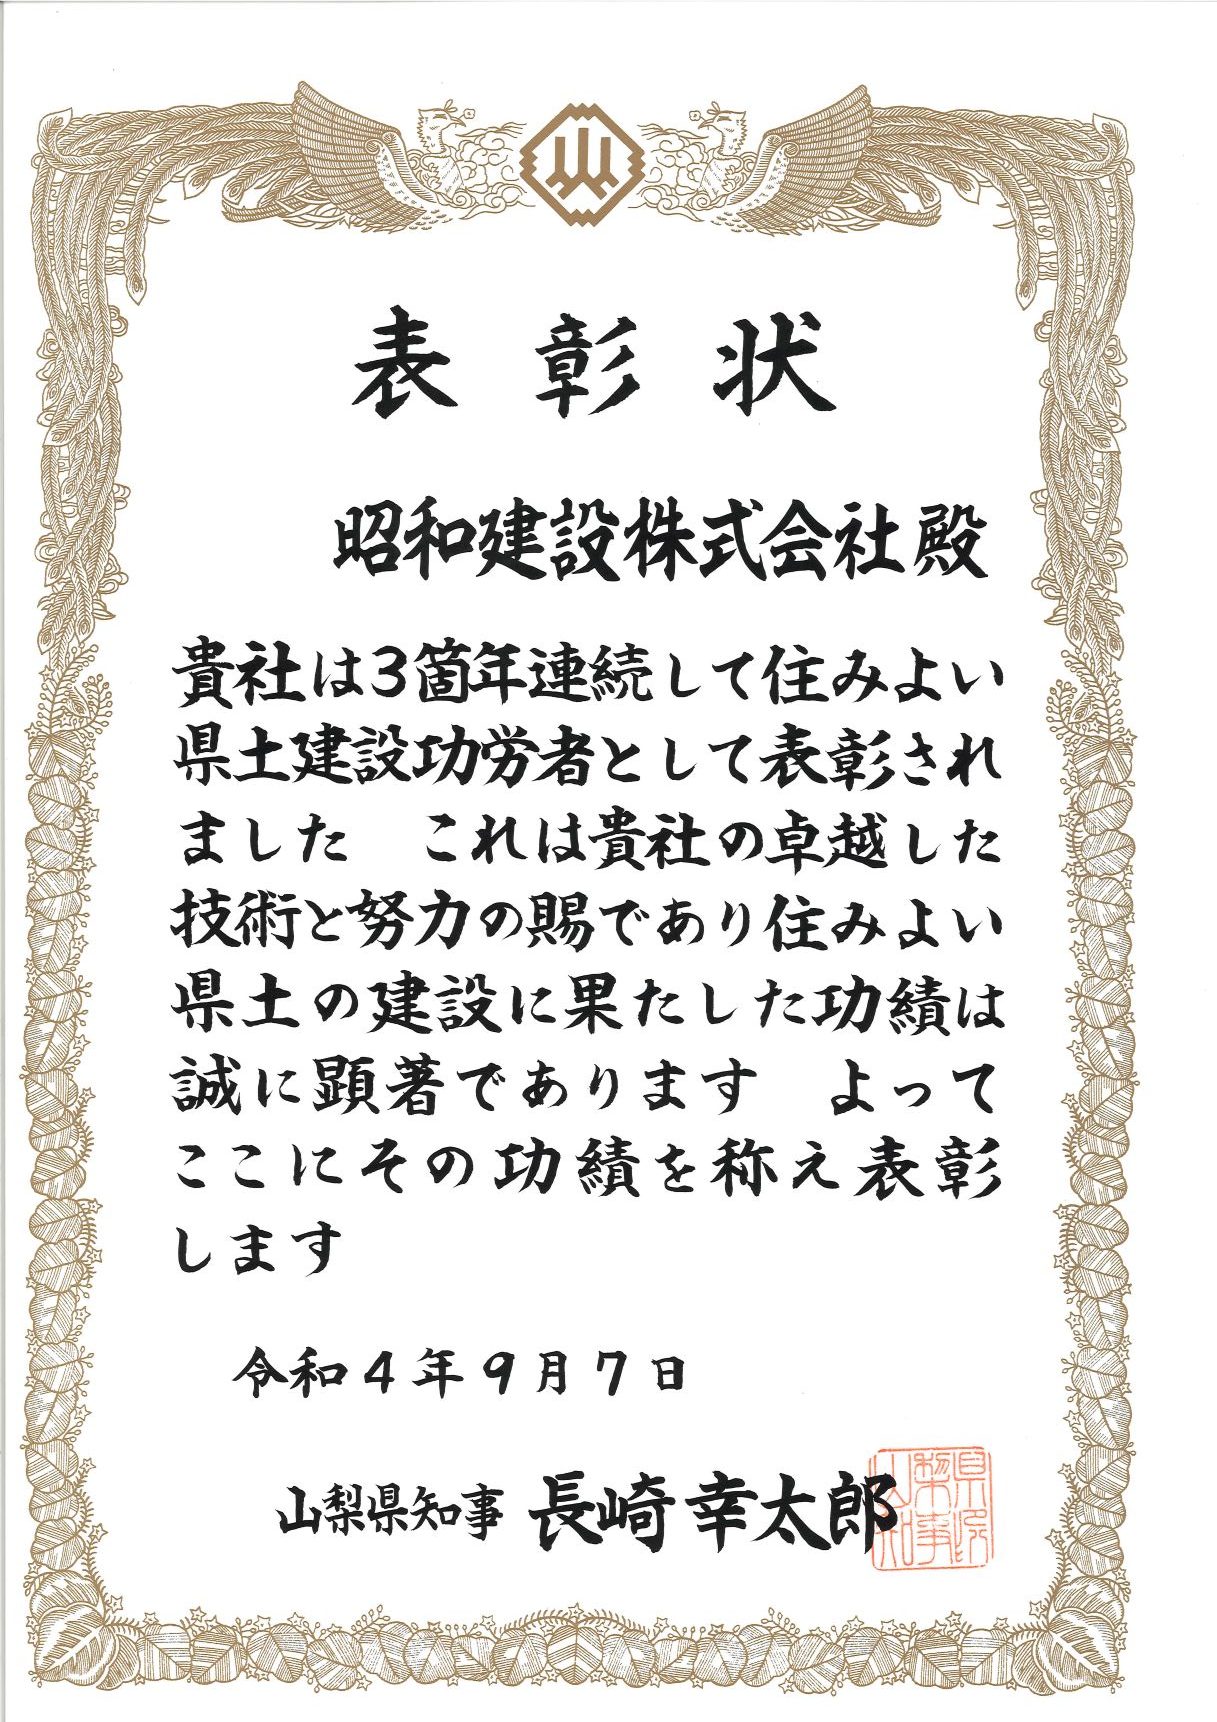 表彰状
昭和建設株式会社殿
貴社は3箇年連続して住みよい
県土建設功労者として表彰され
ました　これは貴社の卓越した
技術と努力の賜であり住みよい
県土の建設に果たした功績は
誠に顕著であります　よって
ここにその功績を称え表彰
します
令和4年9月7日
山梨県知事 長崎幸太郎